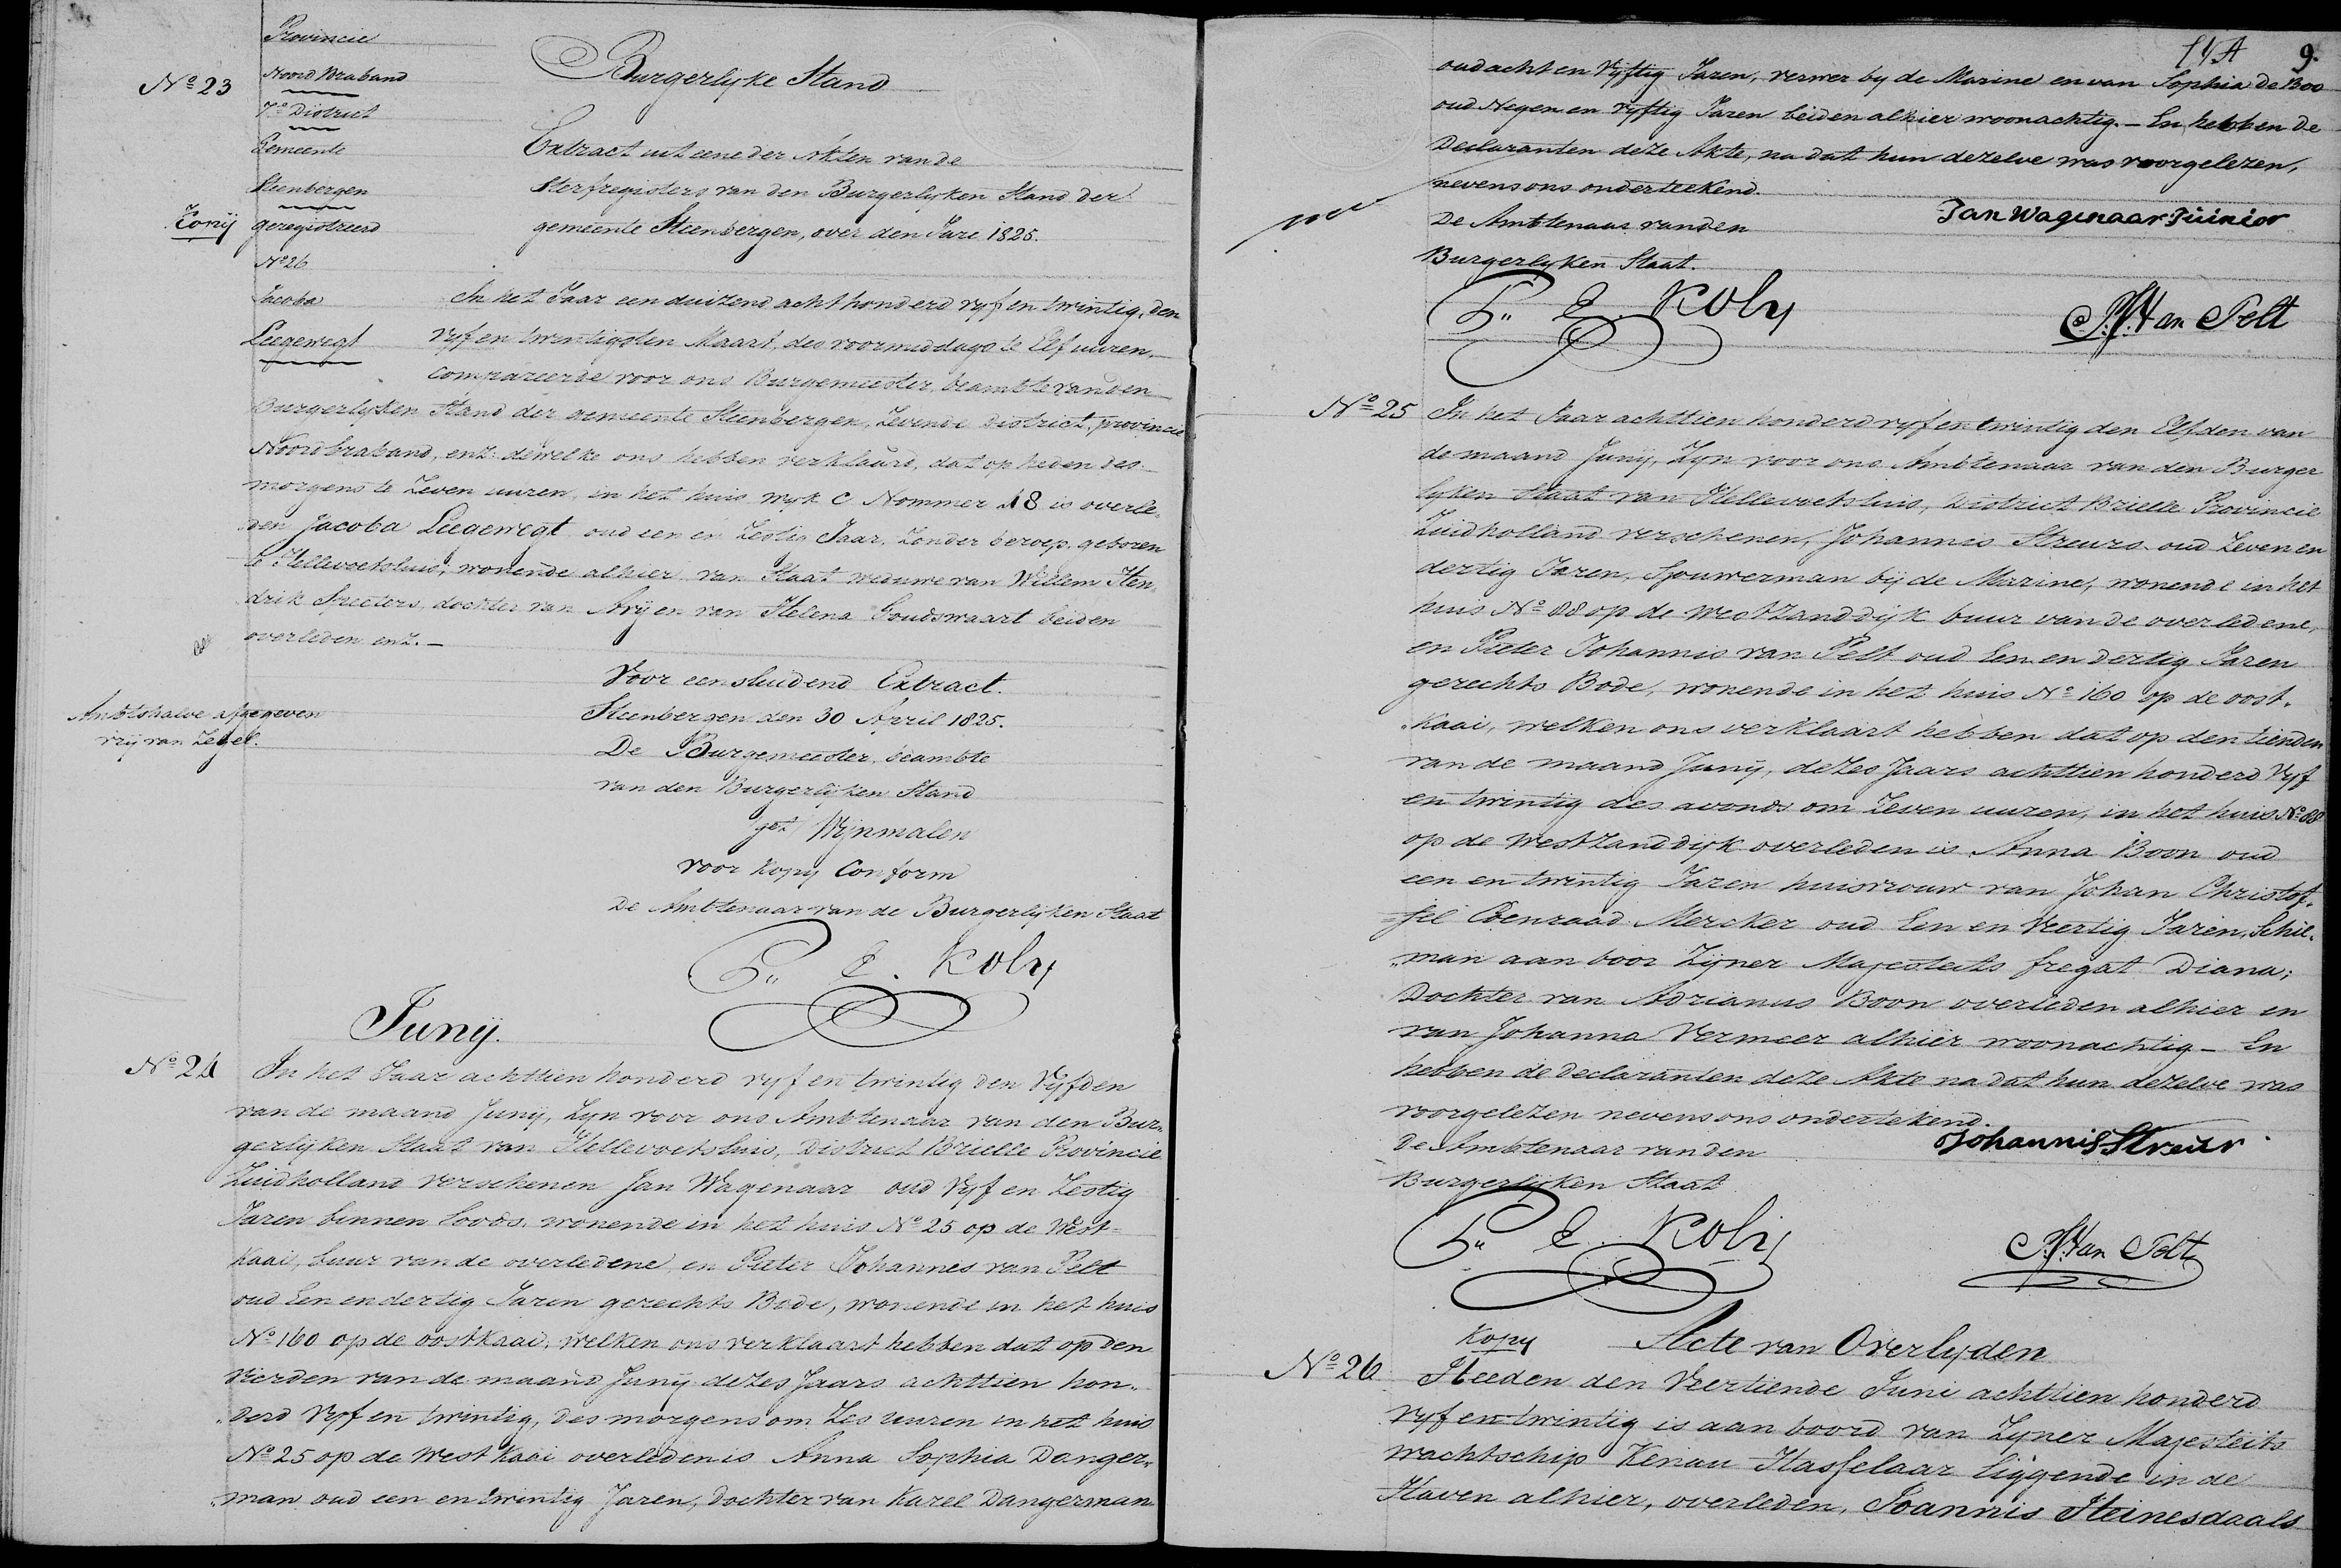 Provincie
Noord Braband
Nº 23
7e District
Gemeente
Steenbergen
Copij
geregistreerd
Nº 26
Jacoba
Leegewegt
Burgerlyke Stand
Extract uit eene der Akten van de
Sterfregisters van den Burgerlyken Stand der
gemeente Steenbergen, over den Jare 1825.
In het Jaar een duizend acht honderd vyf en twintig, den
vyf en twintigsten Maart, des voormiddags te Elf uuren,
compareerde voor ons Burgemeester, beambte van den
Burgerlyken Stand der gemeente Steenbergen, Zevende District, provincie
Noordbraband, enz: dewelke ons hebben verklaard, dat op heden des
morgens te Zeven uuren, in het huis wyk C Nommer 18 is overle-
den Jacoba Leegewegt oud een en Zestig Jaar, Zonder beroep, geboren
te Hellevoetsluis, wonende alhier van Staat weduwe van Willem Hen-
drik Speeters, dochter van Ary en van Helena Goudswaart beiden
overleden enz. -
Voor eensluidend Extract.
Amtshalve afgegeven
vrij van Zegel.
Steenbergen den 30 April 1825.
De Burgemeester, beambte
van den Burgerlijken Stand
get Wijnmalen
voor Kopy Conform
De Ambtenaar van de Burgerlijken Staat
P. E. Koly
Junij.
Nº 24 In het Jaar achttien honderd vyf en twintig den Vijfden
van de maand Junij, Zyn voor ons Ambtenaar van den Bur-
gerlyken Staat van Hellevoetsluis, District Brielle Provincie
Zuidholland verschenen Jan Wagenaar oud Vyf en Zestig
Jaren binnen Loods, wonende in het huis Nº 25 op de West-
kaai, buur van de overledene, en Pieter Johannes van Pelt
oud Een en dertig Jaren gerechts Bode, wonende in het huis
Nº 160 op de oostkaai, welken ons verklaart hebben dat op den
Vierden van de maand Junij dezes Jaars achttien hon-
derd Vyf en twintig, des morgens om Zes uuren in het huis
Nº 25 op de West kaai overleden is Anna Sophia Danger-
man oud een en twintig Jaren, Dochter van Karel Dangerman
9.
oud acht en Vyftig Jaren, verwer by de Marine en van Sophia de Boo
oud Negen en vyftig Jaren beiden alhier woonachtig. - En hebben de
Declaranten deze Akte, na dat hun dezelve was voorgelezen,
nevens ons onderteekend.
Jan Wagenaar Juinior
De Ambtenaar van den
Burgerlyken Staat.
P. E. Koly
P. J. Van Pelt
Nº 25 In het Jaar achttien honderd vyf en twintig den Elfden van
de maand Junij, Zyn voor ons Ambtenaar van den Burger
lyken Staat van Hellevoetsluis, District Brielle Provincie
Zuidholland verschenen, Johannis Streurs oud Zeven en
dertig Jaren, Sjouwerman bij de Marine, wonende in het
huis Nº 88 op de Westzanddijk buur van de overledene,
en Pieter Johannis van Pelt oud Een en dertig Jaren
gerechts Bode, wonende in het huis Nº 160 op de oost-
kaai, welken ons verklaart hebben dat op den tienden
van de maand Junij, dezes Jaars achttien honderd Vyf
en twintig des avonds om Zeven uuren, in het huis Nº 88
op de Westzanddijk overleden is Anna Boon oud
een en twintig Jaren huisvrouw van Johan Christof-
fel Coenraad Mercker oud Een en Veertig Jaren, Schie-
man aan boor Zijner Majesteits fregat Diana;
Dochter van Adrianus Boon overleden alhier en
van Johanna Vermeer alhier woonachtig - En
hebben de declaranten deze Akte na dat hun dezelve was
voorgelezen nevens ons ondertekend.
De Ambtenaar van den
Johannis Streur
Burgerlijken Staat
P. E. Koly
P. J. Van Pelt
Kopy Acte van Overlyden
Nº 26 Heeden den Veertiende Juni achttien honderd
vyf en twintig is aan boord van Zyner Majesteits
wachtschip Kenau Hasselaar liggende in de
Haven alhier, overleden, Joannis Heinesdaals